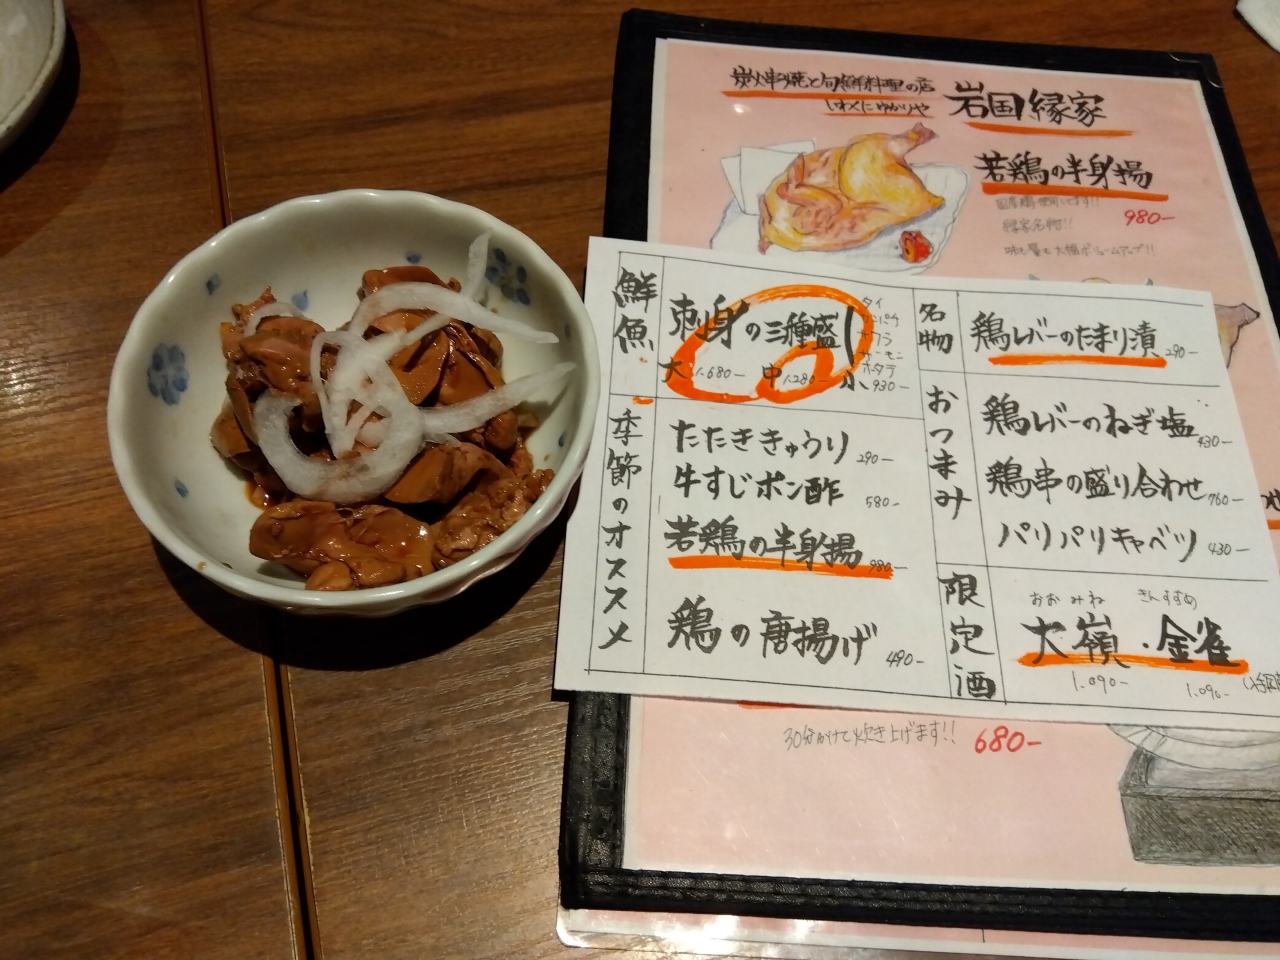 炭火串焼と旬鮮料理の店
いわくにゆかりや
岩国縁家
若鶏の半身揚
国産鶏使用してます!!
980-
縁家名物!!
味も量も大幅ボリュームアップ!!
鮮魚
刺身の三種盛り
タイ
カンパチ
サーモン
ホタテ
大 1.680- 中 1.280- 小 930-
季節のオススメ
たたききゅうり 290-
牛すじポン酢 580-
若鶏の半身揚 980-
鶏の唐揚げ 490-
名物
鶏レバーのたまり漬 290-
おつまみ
鶏レバーのねぎ塩 430-
鶏串の盛り合わせ 760-
パリパリキャベツ 430-
限定酒
おおみね きんすずめ
大嶺・金雀
1.090- 1.090-
30分かけて炊き上げます!!
680-